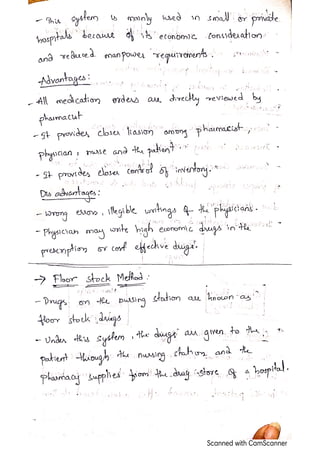 - This system is mainly used in small or private
hospitals because of its economic consideration
and reduced manpower requirements.
Advantages:
- All medication orders are directly reviewed by
pharmacist
- It provides closer liasion among pharmacist,
physician, nurse and the patient
- It provides closer control of inventory.
Dis advantages:
- Wrong error, illegible writings of the physicians.
- Physician may write high economic drugs in the
prescription or cost effective drugs.
→ Floor Stock Method:
- Drugs on the nursing station are known as
floor stock drugs
- Under this system, the drugs are given to the
patient through the nursing station and the
pharmacy supplies from the drug store of a hospital.
Scanned with CamScanner